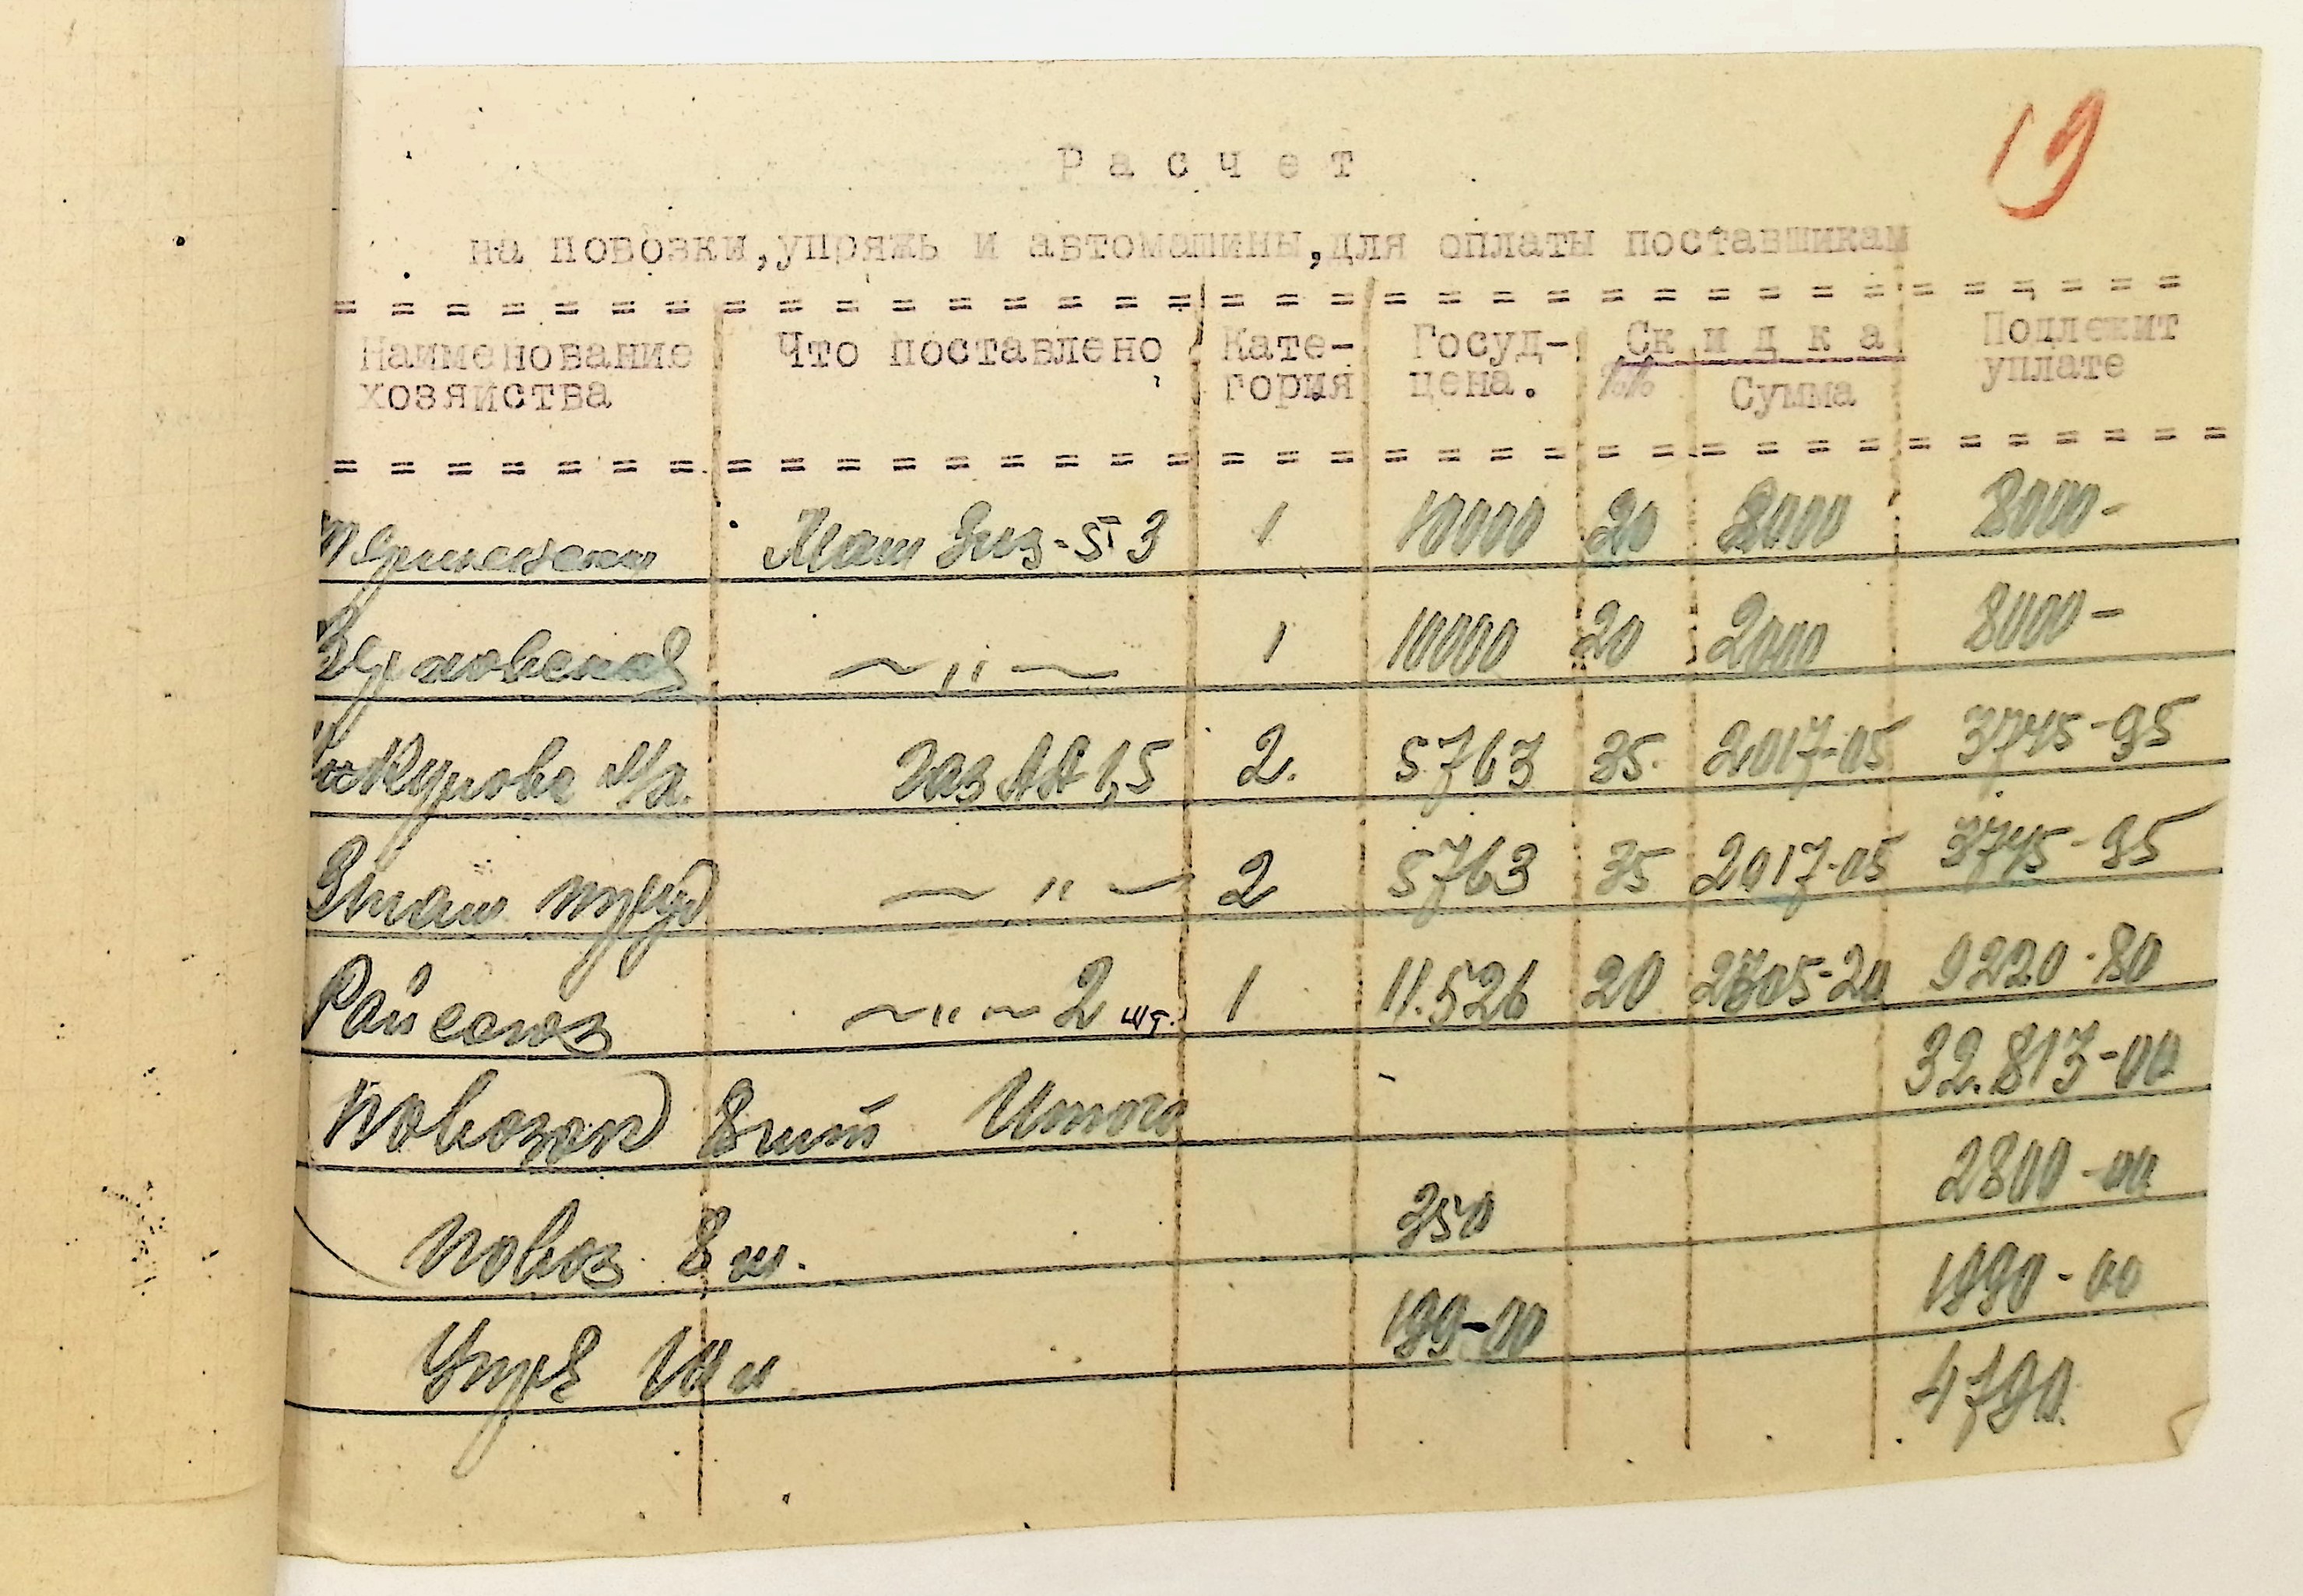 19
Расчет
на повозки,упряжь и автомашины,для оплаты поставшикам
Наименование хозяйства Что поставлено Кате-гория Госуд-цена. Скидка %% Сумма Подлежит уплате
Маш Зиз-5т 3 1 10000 20 8000 8000-
— " — 1 10000 20 2000 8000-
Газ АА 1,5 2. 5763 35. 2017-05 3745-95
труд — " — 2 5763 35 2017-05 3745-95
Райсоюз — " — 2 шт. 1 11.526 20 2305-20 9220-80
Повозок 8 шт Итого 32.813-00
Повоз 8 ш. 350 2800-00
199-00 1990-00
4790.